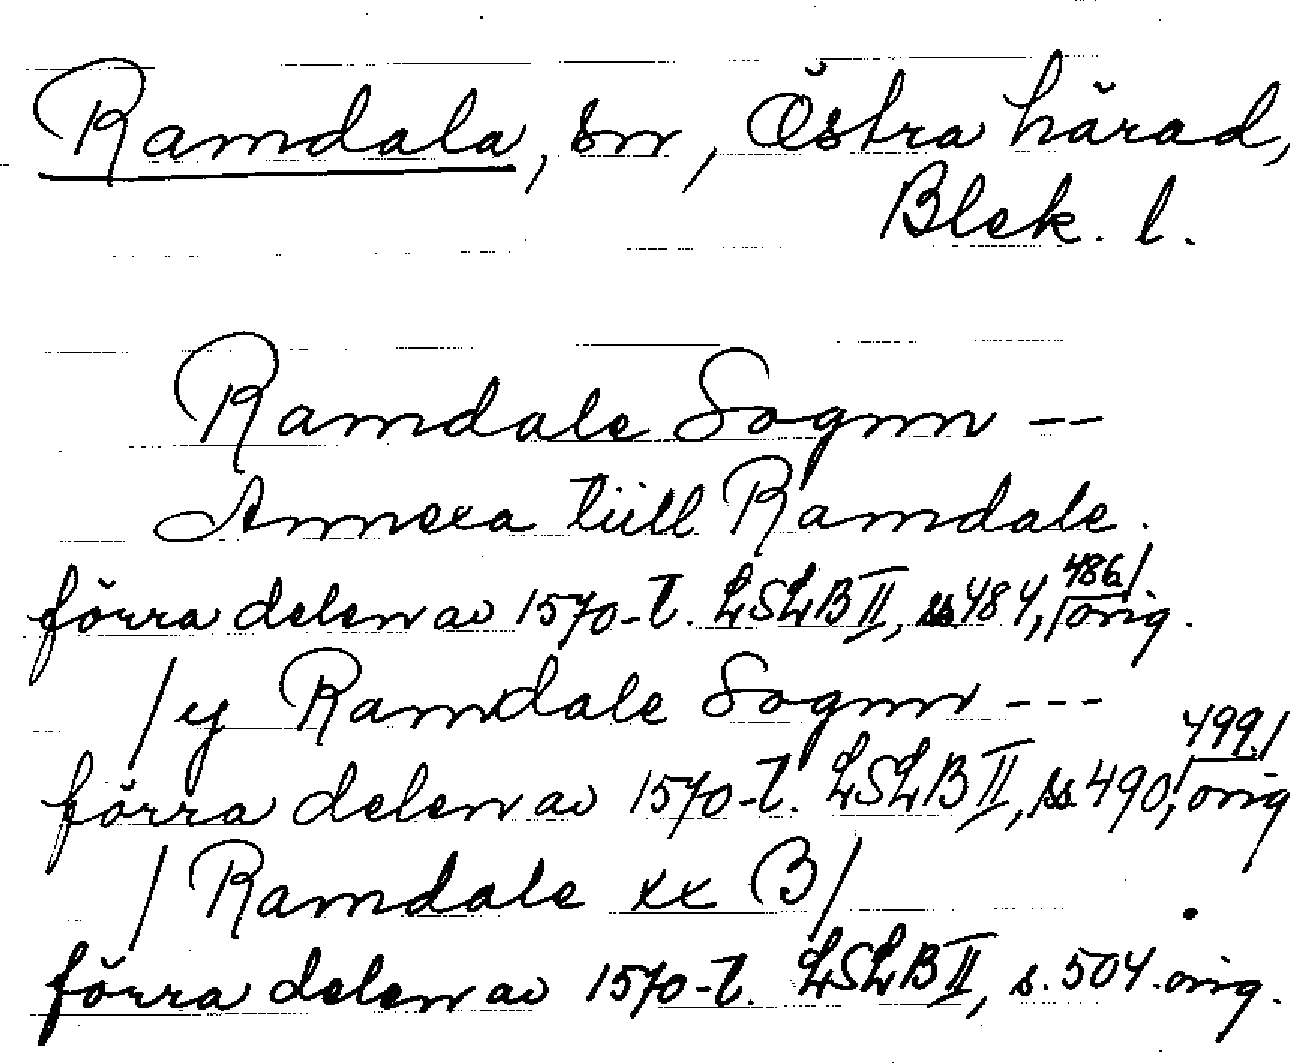 Ramdala, sn, Östra härad,
Blek. l.
Ramdale Sognn --
Annexa tiill Ramdale.
förra delen av 1570-t. LSLB II, ss 484, 486/ orig.
/ y Ramdale Sognn ---
förra delen av 1570-t. LSLB II, ss. 490, 499/ orig
/ Ramdale xx B /
förra delen av 1570-t. LSLB II, s. 504. orig.